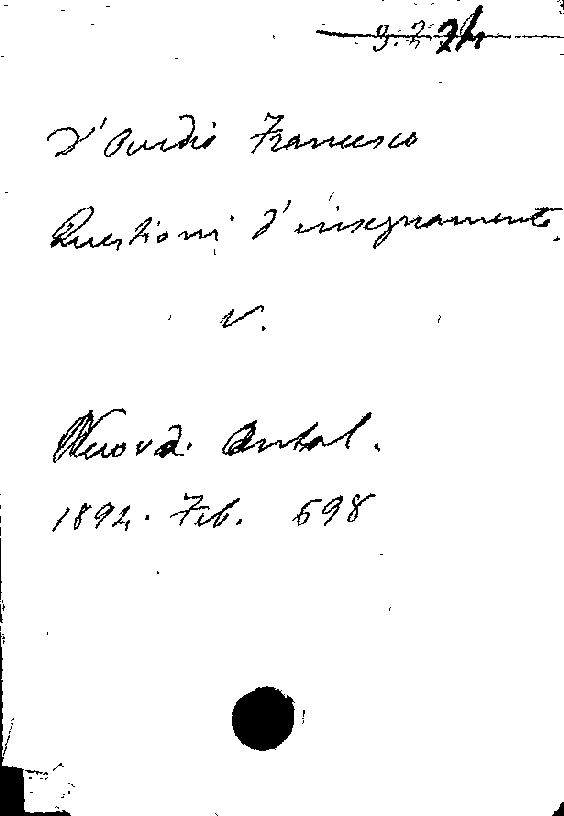 D'Ovidio Francesco
Questioni d'insegnamento.
V.
Nuova. Antol.
1894. Feb. 598